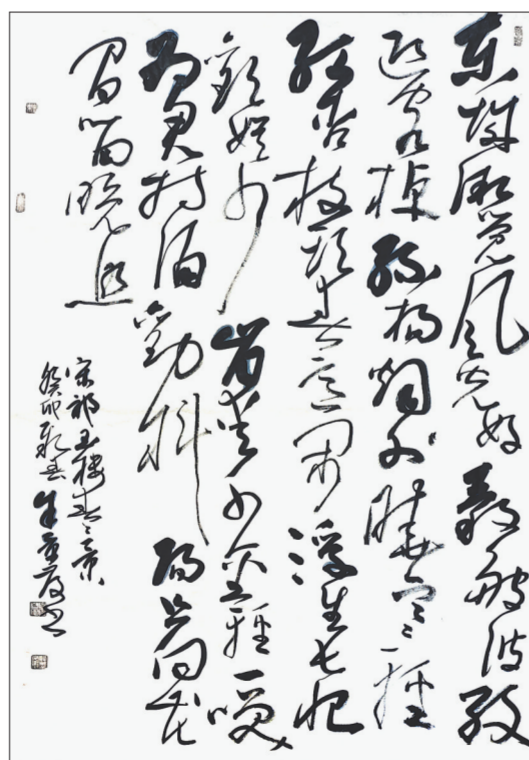 东城渐觉风光好縠皱波纹
迎客棹绿杨烟外晓寒轻
红杏枝头春意闹浮生长恨
欢娱少肯爱千金轻一笑
为君持酒劝斜阳且向花
间留晚照
宋祁玉楼春春景
癸卯新春